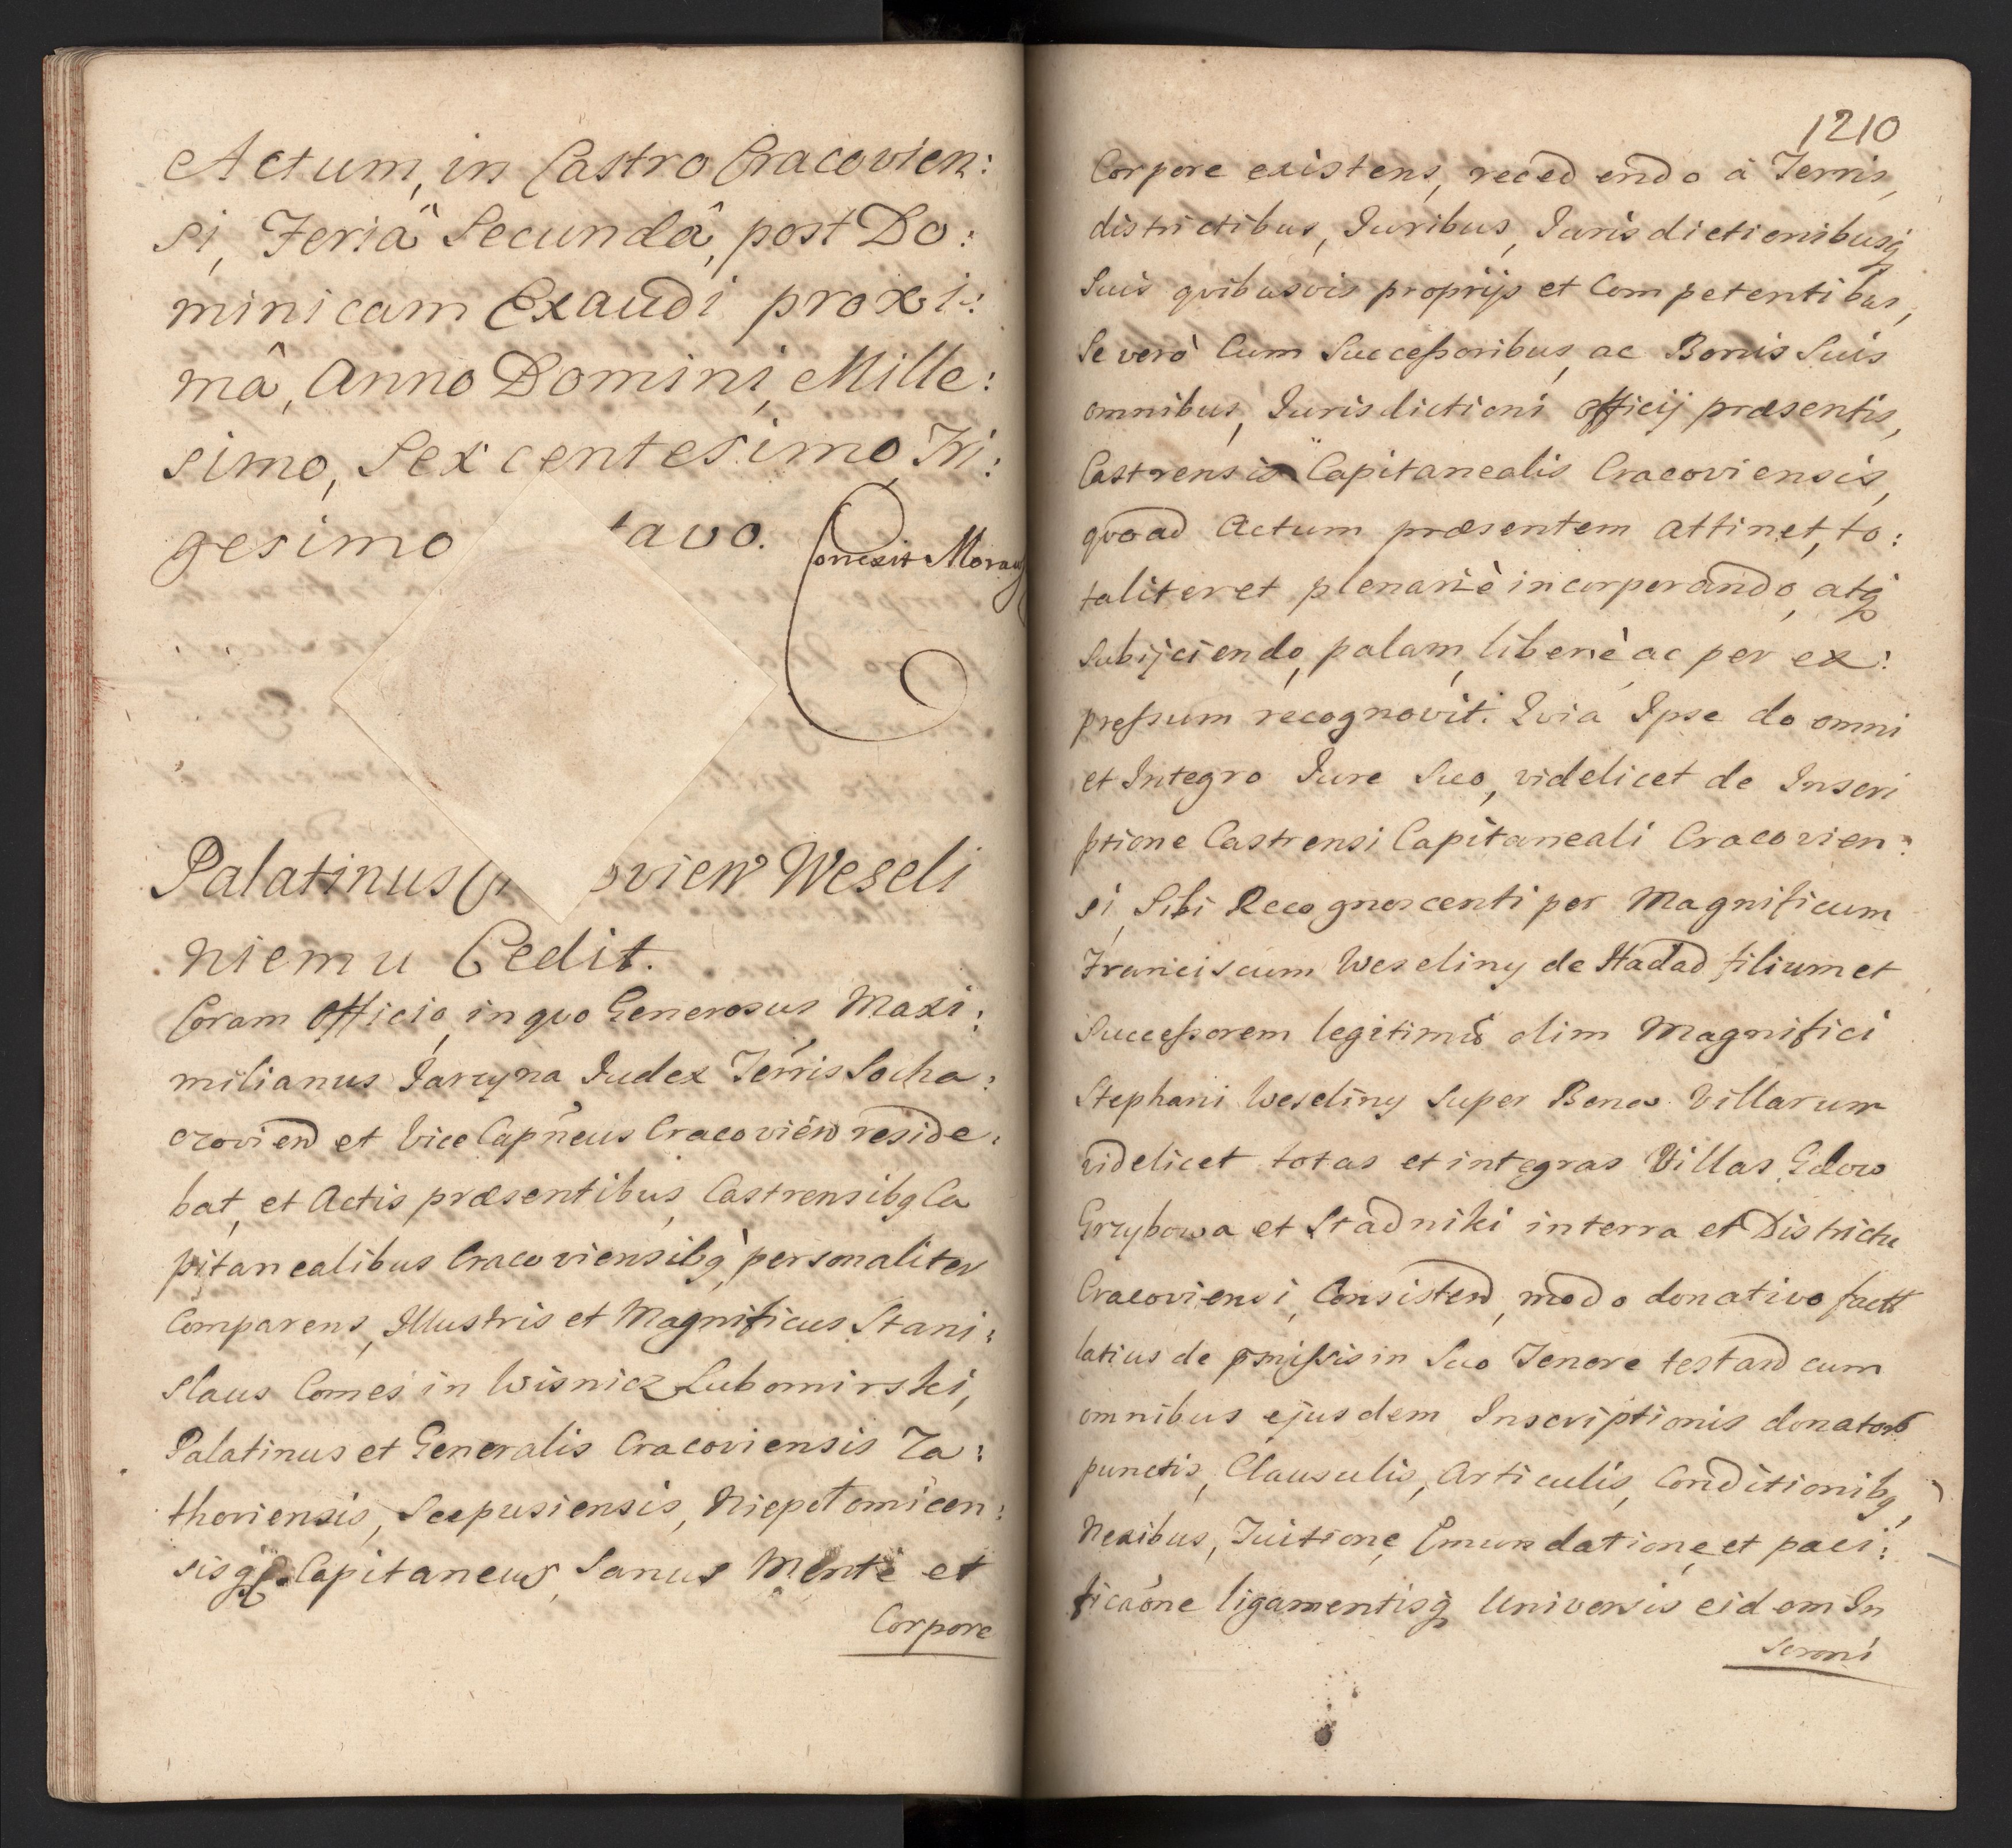 Actum, in Castro Cracovien:
si, Feriâ Secundâ, post Do:
minicam Exaudi proxi:
mâ, Anno Domini, Mille:
simo, Sexcentesimo, Tri:
gesimo tavo.
Correxit Moraw
Palatinus Cr ovien Weseli
niemu Cedit.
Coram Officio, in quo Generosus Maxi:
milianus Jarcyna Judex Terris Socha:
czovien et Vice Capneus Cracovien reside:
bat, et Actis præsentibus, Castrensibq Ca
pitanealibus Cracoviensibq personaliter
Comparens, Illustris et Magnificus Stani:
slaus Comes in Wisnicz Lubomirski,
Palatinus et Generalis Cracoviensis Za:
thoriensis, Scepusiensis, Niepołomicen:
sisq Capitaneus, Sanus Mente et
Corpore
1210
Corpore existens, recedendo à Terris,
districtibus, Juribus, Jurisdictionibusq
Suis qvibusvis proprijs et Competentibus,
Se verò Cum Successoribus, ac Bonis Suis
omnibus, Jurisdictioni officij præsentis,
Castrensis Capitanealis Cracoviensis,
qvoad Actum præsentem attinet, to:
taliter et plenariè incorporando, atq
Subijciendo, palam, liberè ac per ex:
pressum recognovit. Qvia Ipse do omni
et Integro Jure Suo, videlicet de Inscri
ptione Castrensi Capitaneali Cracovien:
si, Sibi Recognoscenti per Magnificum
Franciscum Weseliny de Hadad filium et
Successorem legitimũ olim Magnifici
Stephani Weseliny Super Bonis Villarum
videlicet totas et integras Villas Gdow
Grzybowa et Stadniki in terra et Districtu
Cracoviensi, Consisten, modo donativo factt
latius de pmissis in Suo Tenore testan cum
omnibus ejusdem Inscriptionis donatorb
punctis, Clausulis, Articulis, Conditionibq,
Nexibus, Tuitione, Emundatione, et paci:
ficaone ligamentisq Universis eidem In
Scroni